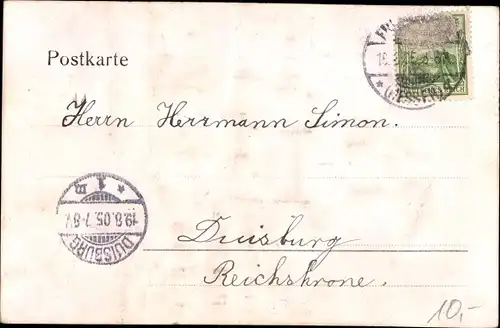 Postkarte
Herrn Herrmann Simon.
* 1 m
19.8.05.7-8V.
DUISBURG
Duisburg
Reichskrone.
10,-